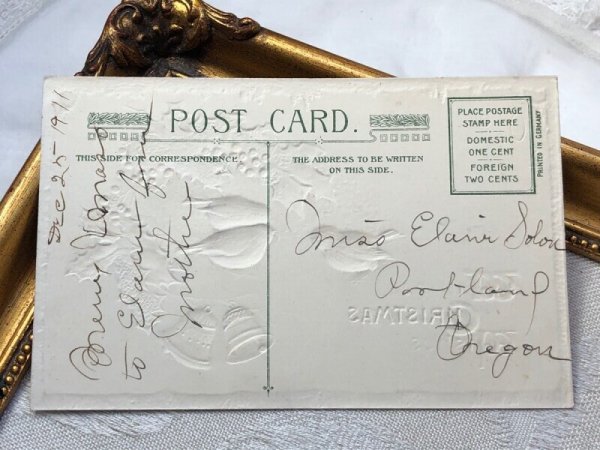 POST CARD.
THIS SIDE FOR CORRESPONDENCE.
THE ADDRESS TO BE WRITTEN
ON THIS SIDE.
PLACE POSTAGE
STAMP HERE
DOMESTIC
ONE CENT
FOREIGN
TWO CENTS
PRINTED IN GERMANY
Dec 25 - 1911
Merry Xmas
to Elaine from
Mother
Miss Elaine
Portland
Oregon
CHRISTMAS